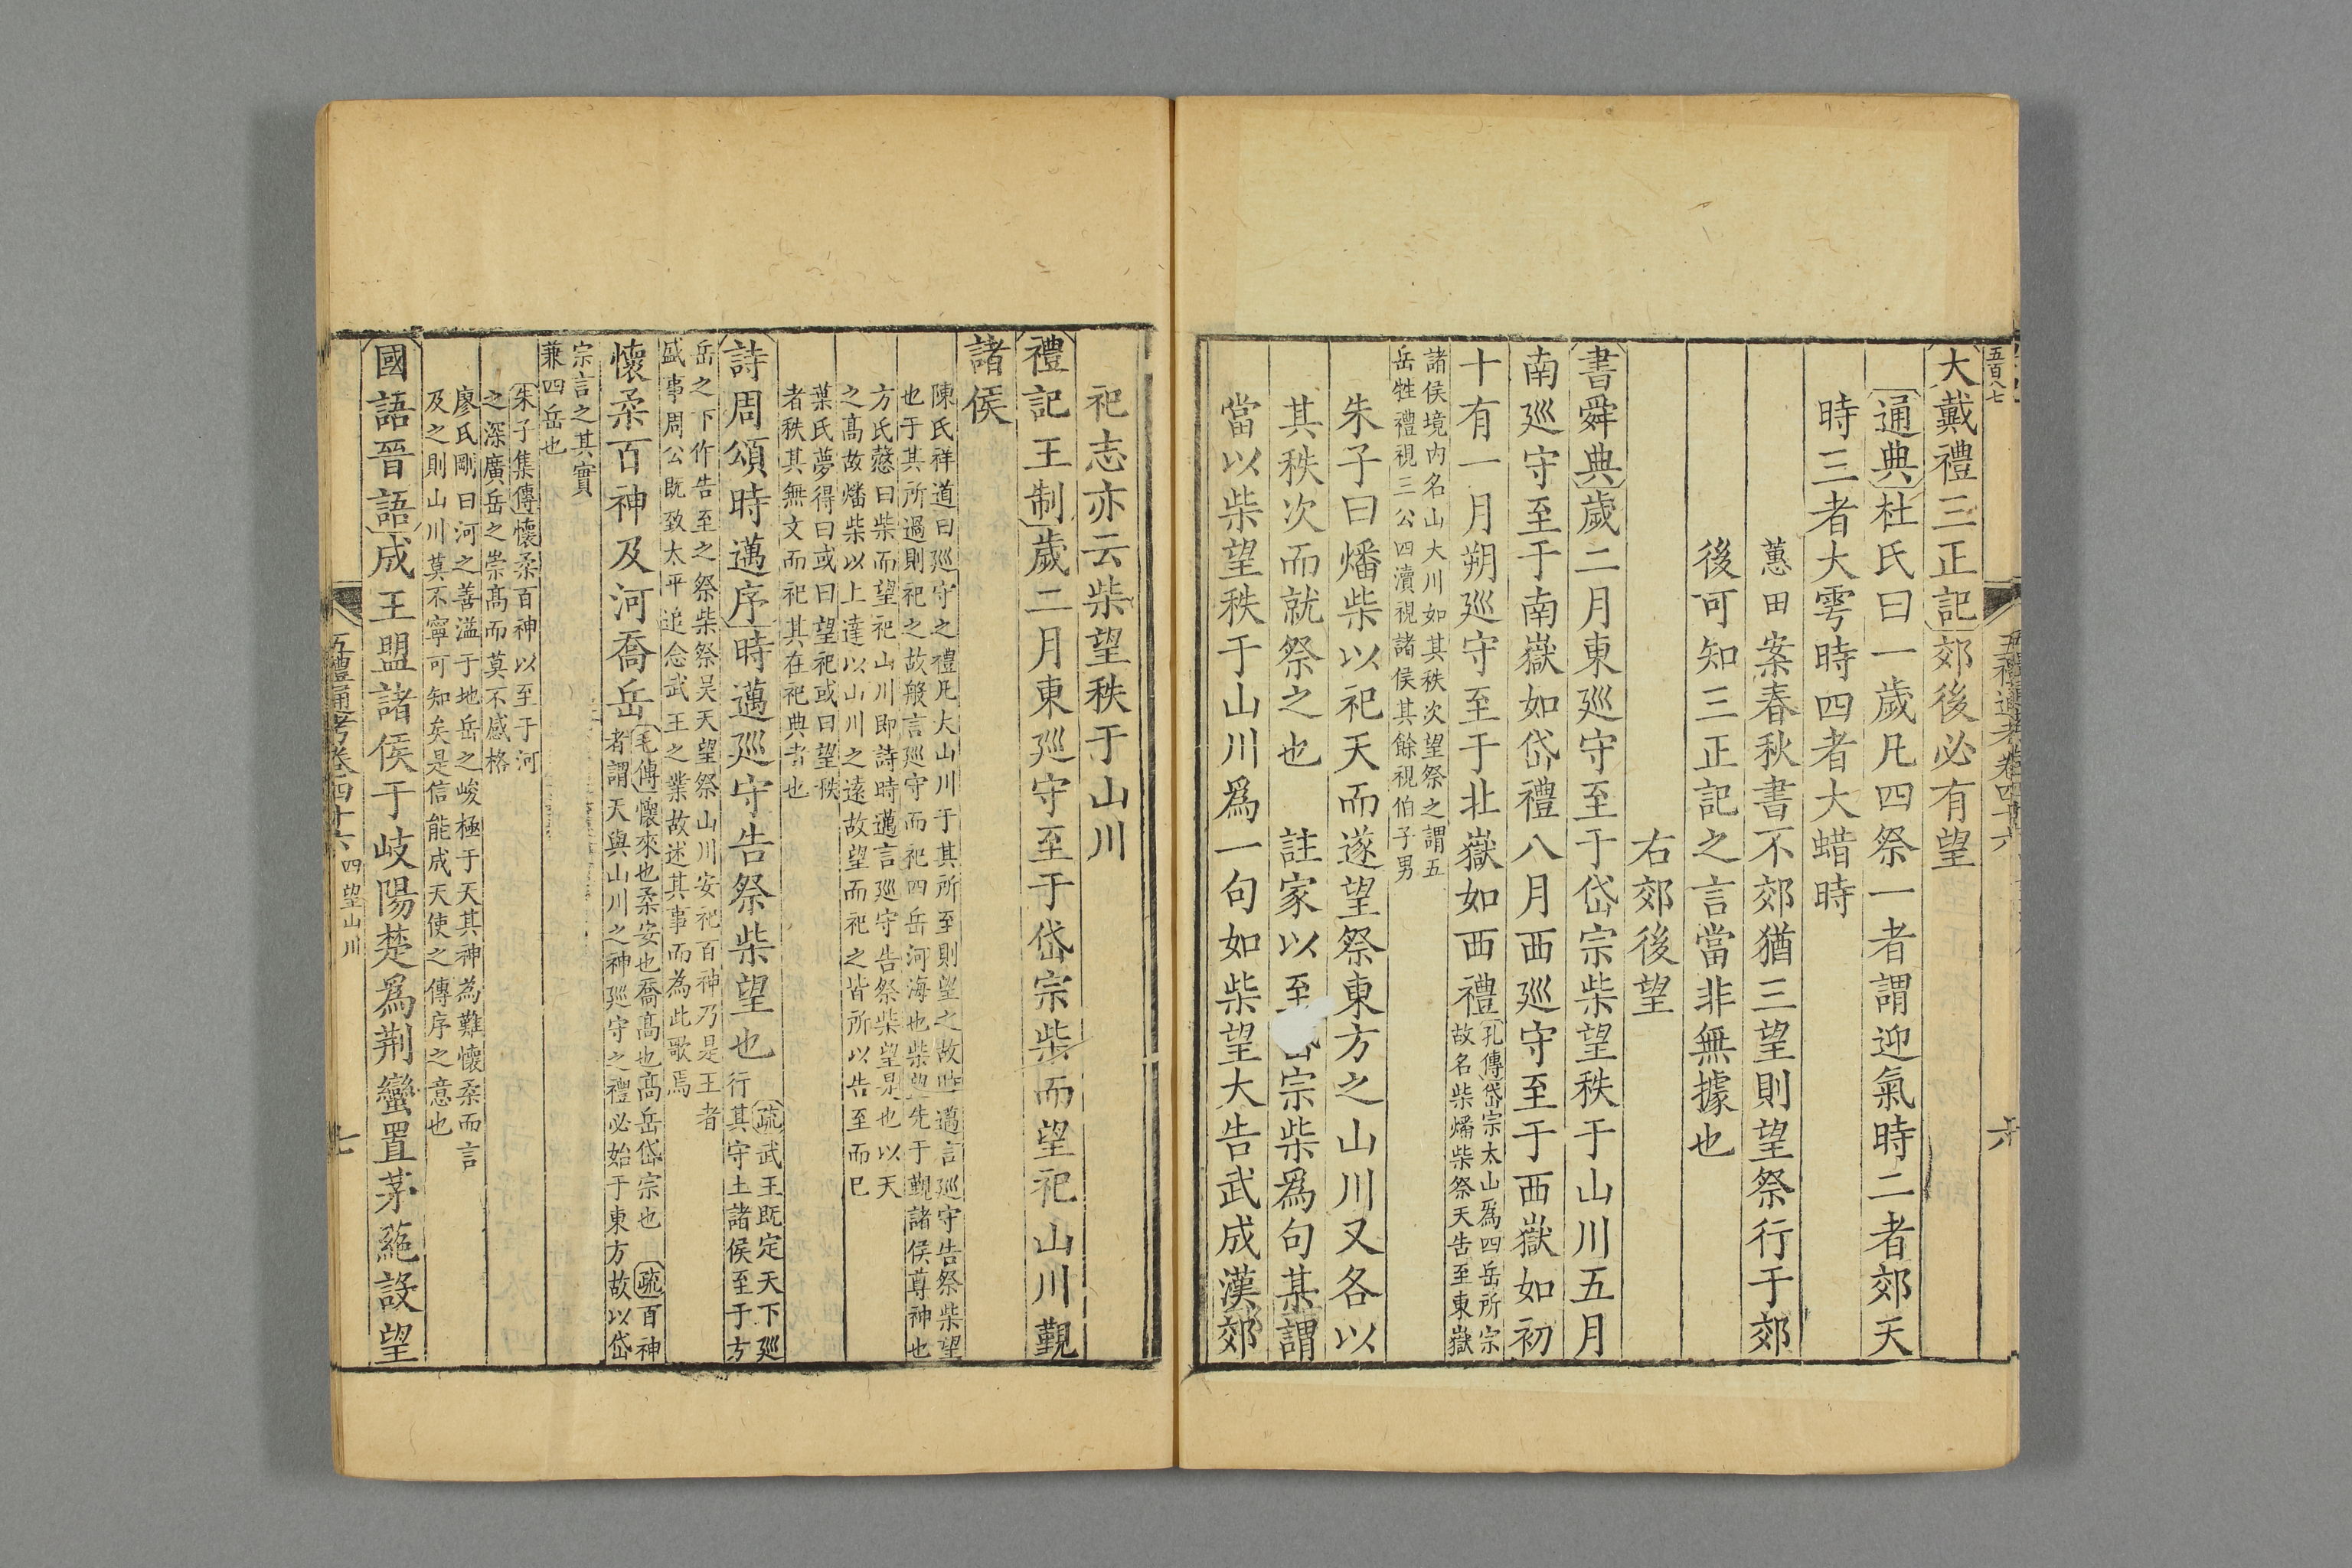 五百八七
五禮通考卷四十六
六
大戴禮三正記郊後必有望
通典杜氏曰一歲凡四祭一者謂迎氣時二者郊天
時三者大雩時四者大蜡時
蕙田案春秋書不郊猶三望則望祭行于郊
後可知三正記之言當非無據也
右郊後望
書舜典歲二月東廵守至于岱宗柴望秩于山川五月
南廵守至于南嶽如岱禮八月西廵守至于西嶽如初
十有一月朔廵守至于北嶽如西禮
孔傳岱宗太山為四岳所宗
故名柴燔柴祭天告至東嶽
諸侯境内名山大川如其秩次望祭之謂五
岳牲禮視三公四瀆視諸侯其餘視伯子男
朱子曰燔柴以祀天而遂望祭東方之山川又各以
其秩次而就祭之也 註家以至宗柴爲句某謂
當以柴望秩于山川爲一句如柴望大告武成漢郊
祀志亦云柴望秩于山川
禮記王制歲二月東廵守至于岱宗柴而望祀山川覲
諸侯
陳氏祥道曰廵守之禮凡大山川于其所至則望之故時邁言廵守告祭柴望
也于其所過則祀之故般言廵守而祀四岳河海也柴望先于覲諸侯尊神也
方氏慤曰柴而望祀山川即詩時邁言廵守告祭柴望是也以天
之髙故燔柴以上達以山川之遠故望而祀之皆所以告至而已
葉氏夢得曰或曰望祀或曰望秩
者秩其無文而祀其在祀典者也
詩周頌時邁序時邁廵守告祭柴望也
疏武王既定天下廵
行其守土諸侯至于方
岳之下作告至之祭柴祭昊天望祭山川安祀百神乃是王者
盛事周公既致太平追念武王之業故述其事而為此歌焉
懷柔百神及河喬岳
毛傳懷來也柔安也喬髙也髙岳岱宗也 疏百神
者謂天與山川之神廵守之禮必始于東方故以岱
宗言之其實
兼四岳也
朱子集傳懷柔百神以至于河
之深廣岳之崇髙而莫不感格
廖氏剛曰河之善溢于地岳之峻極于天其神為難懷柔而言
及之則山川莫不寧可知矣是信能成天使之傳序之意也
國語晉語成王盟諸侯于岐陽楚爲荆蠻置茅蕝設望
五禮通考卷四十六 四望山川
七